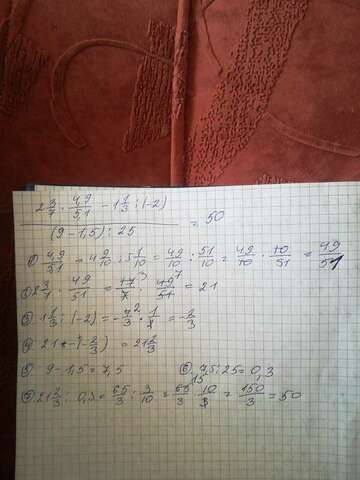 2 3/7 · 4,9/5,1 − 1 1/3 : (−2)
(9 − 1,5) : 25
= 50
1) 4,9/5,1 = 4 9/10 : 5 1/10 = 49/10 : 51/10 = 49/10 · 10/51 = 49/51
2) 2 3/7 · 49/51 = 17/7 · 49/51 = 21
3) 1 1/3 : (−2) = −4/3 · 1/2 = −2/3
4) 21 − (−2/3) = 21 2/3
5) 9 − 1,5 = 7,5 6) 7,5 : 25 = 0,3
7) 21 2/3 : 0,3 = 65/3 : 3/10 = 65/3 · 10/3 = 150/3 = 50